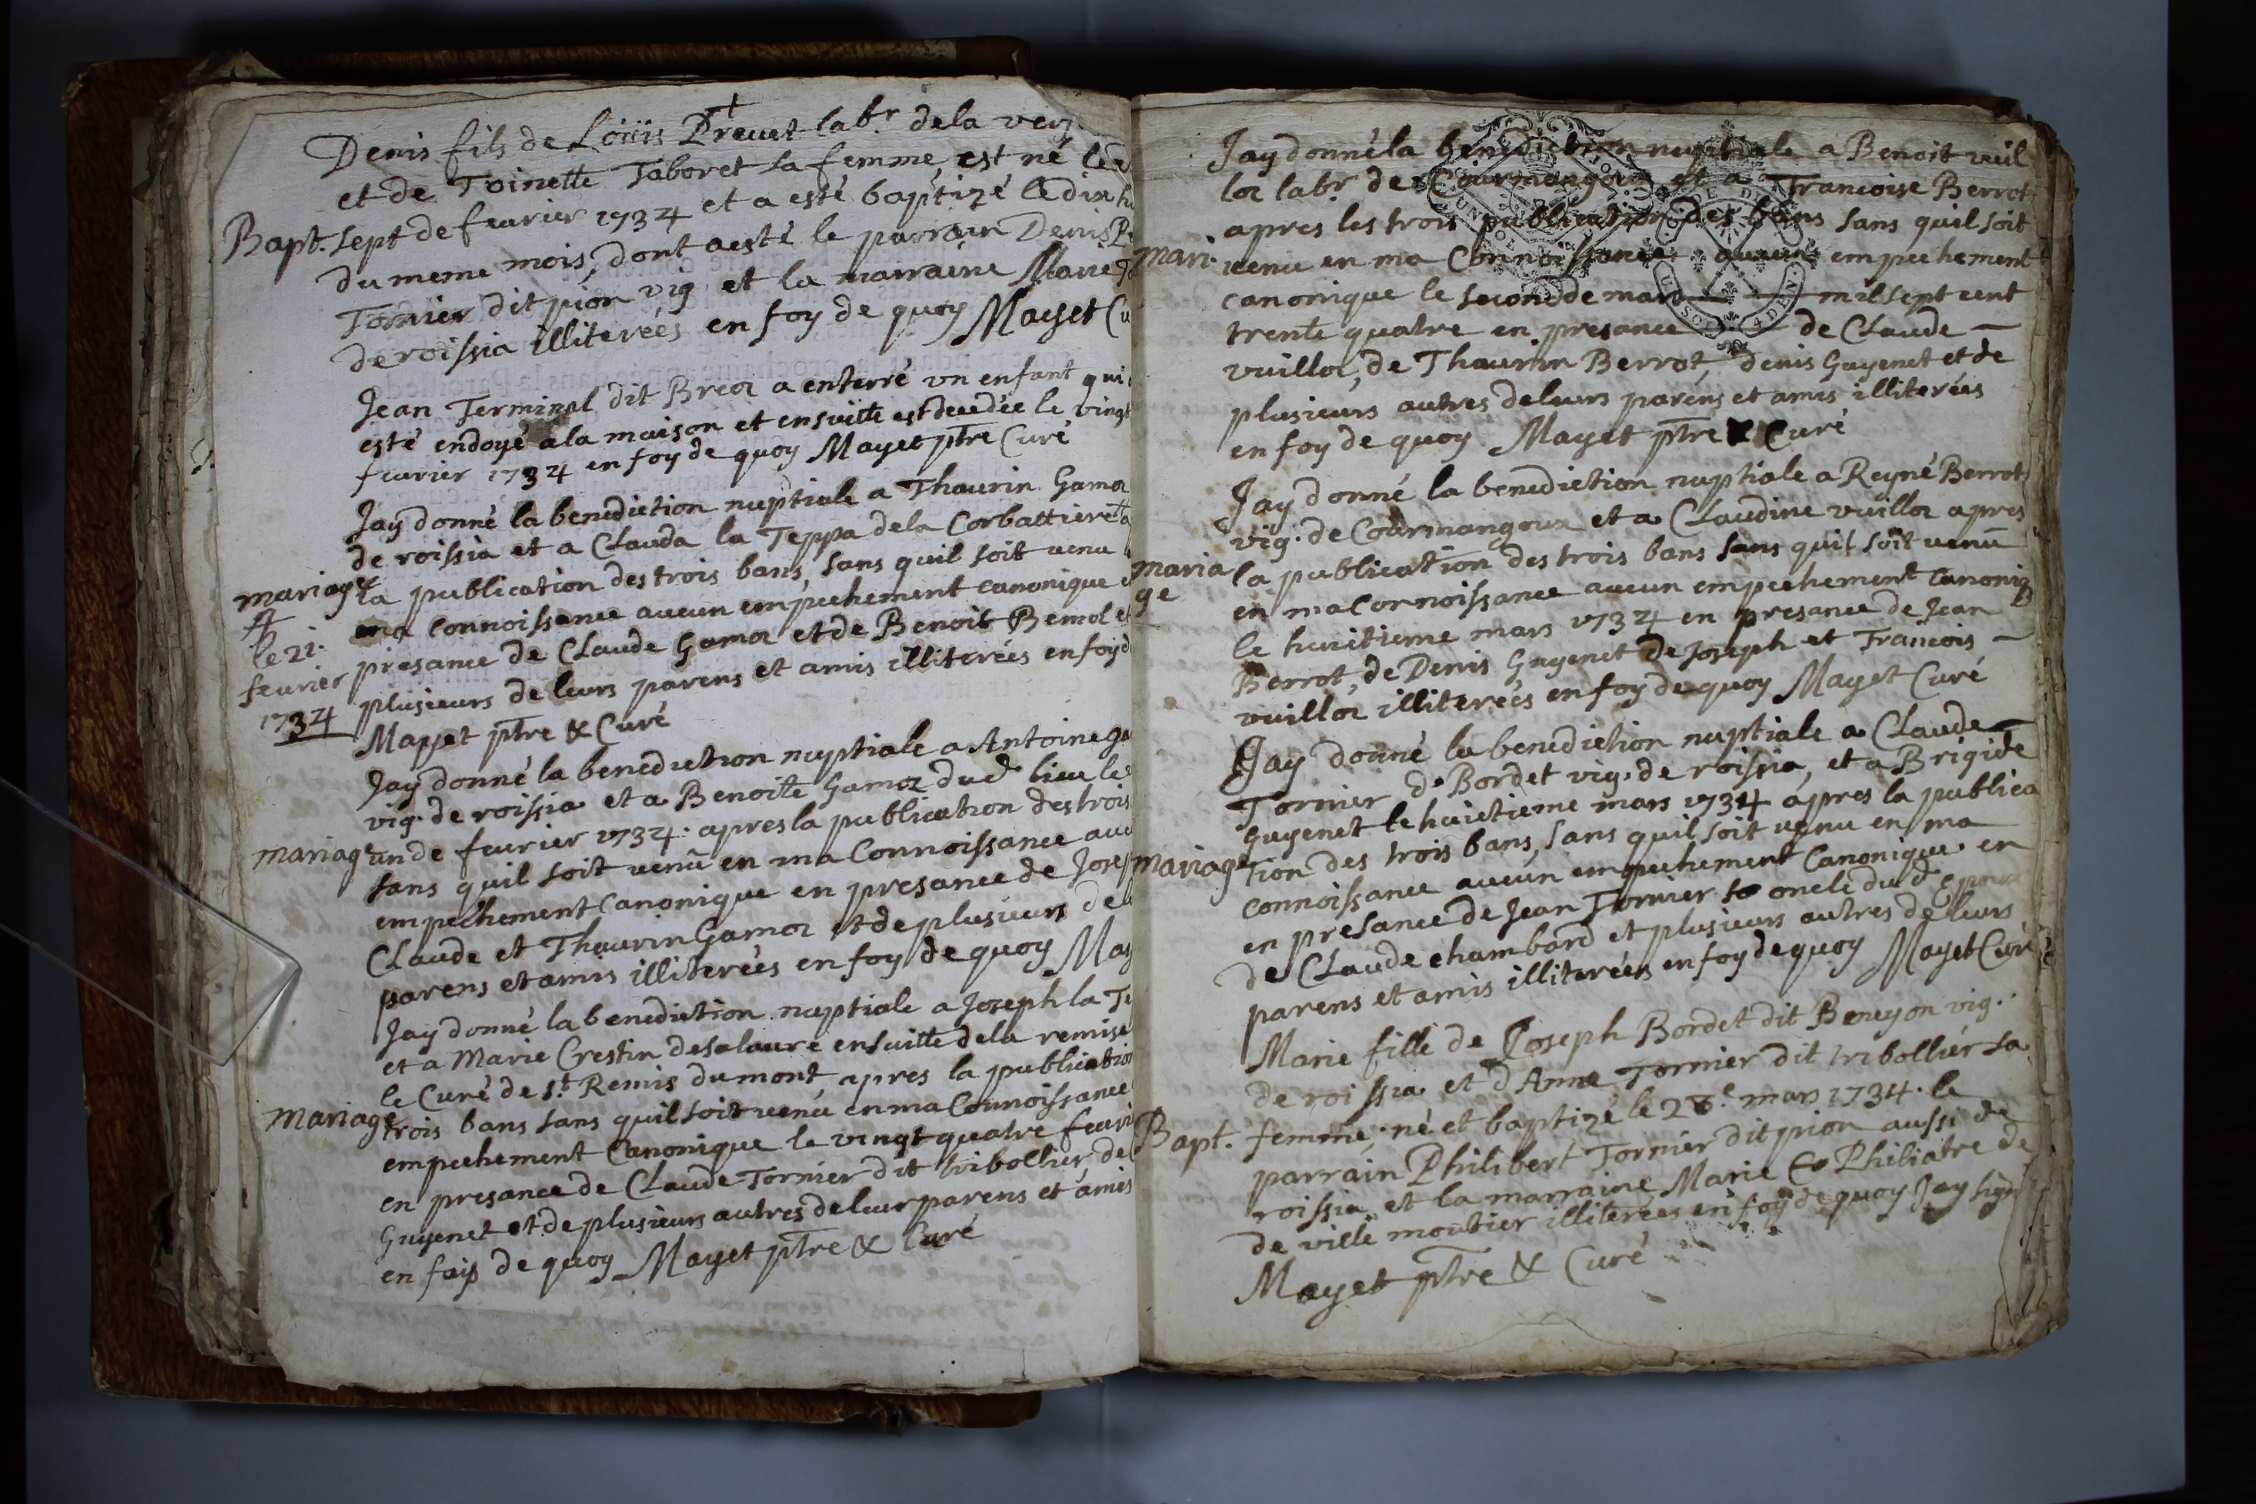 Denis fils de Loüis Prevet labr de la
et de Toinette Taboret sa femme, est né le
Bapt. sept de fevrier 1734 et a esté baptizé le dix
du meme mois, dont a esté le parrain Denis
Tornier dit pion vig et la marraine Marie
de roissia illiterées en foy de quoy Mayet
Jean Terminal dit Breoz a enterré vn enfant qui
esté endoyé a la maison et ensuitte est decedée le vingt
fevrier 1734 en foy de quoy Mayet ptre Curé
Jay donné la benediction nuptiale a Thaurin Gamoz
de roissia et a Clauda la Teppa de la Corbattiere
mariage la publication des trois bans, sans quil soit venu
ma connoissance aucun empechement canonique
le 21. fevrier 1734
presance de Claude Gamoz et de Benoit Bemol et
plusieurs de leurs parens et amis illiterées en foy d
Mayet ptre & Curé
Jay donné la benediction nuptiale a Antoine
vig. de roissia et a Benoite Gamoz dud lieu le
mariage un de fevrier 1734. apres la publication des trois
sans quil soit venu en ma Connoissance
empechement Canonique en presance de
Claude et Thaurin Gamoz et de plusieurs de
parens et amis illiterées en foy de quoy
Jay donné la benediction nuptiale a Joseph la
et a Marie Crestin deselaure ensuitte de la remise
le Curé de St Remis dumont apres la publication
mariage trois bans sans quil soit venu en ma Connoissance
empechement Canonique le vingt quatre
en presance de Claude Tornier dit tribollier, de
Guyenet et de plusieurs autres de leur parens et amis
en foy de quoy Mayet ptre & Curé
Jay donné la benediction nuptiale a Benoit vuil
loz labr de Courmangoux et a Francoise Berrot
apres les trois publication des bans sans quil soit
mari. venu en ma Connoissance aucun empechement
canonique le second de mars mil sept cent
trente quatre en presance de Claude
vuilloz, de Thaurin Berrot, denis Guyenet et de
plusieurs autres de leurs parens et amis illiterées
en foy de quoy Mayet ptre & Curé
Jay donné la benediction nuptiale a Reyné Berrot
vig. de Courmangoux et a Claudine vuilloz apres
mariage la publication des trois bans sans quil soit venu
en ma Connoissance aucun empechement Canoniq
le huitieme mars 1734 en presance de Jean
Berrot, de Denis Guyenet de Joseph et Francois
vuilloz illiterées en foy de quoy Mayet Curé
Jay donné la benediction nuptiale a Claude
Tornier d. Bordet vig. de roissia, et a Brigide
Guyenet le huictieme mars 1734 apres la publica
mariage tion des trois bans, sans quil soit venu en ma
connoissance aucun empechement Canonique en
en presance de Jean Tornier oncle dud
de Claude chambard et plusieurs autres de leurs
parens et amis illiterées en foy de quoy Mayet Curé
Marie fille de Joseph Bordet dit Beneyon vig.
de roissia et d Anne Tornier dit tribollier sa
Bapt. femme, né et baptizé le 28e mars 1734. le
parrain Philibert Tornier dit pion aussi de
roissia et la marraine Marie Philiatre de
de ville moutier illiterées en foy de quoy Jay
Mayet ptre & Curé